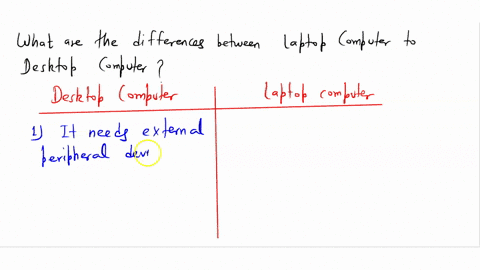 What are the differences between Laptop Computer to
Desktop Computer?
Desktop Computer
Laptop computer
1) It needs external
peripheral devi